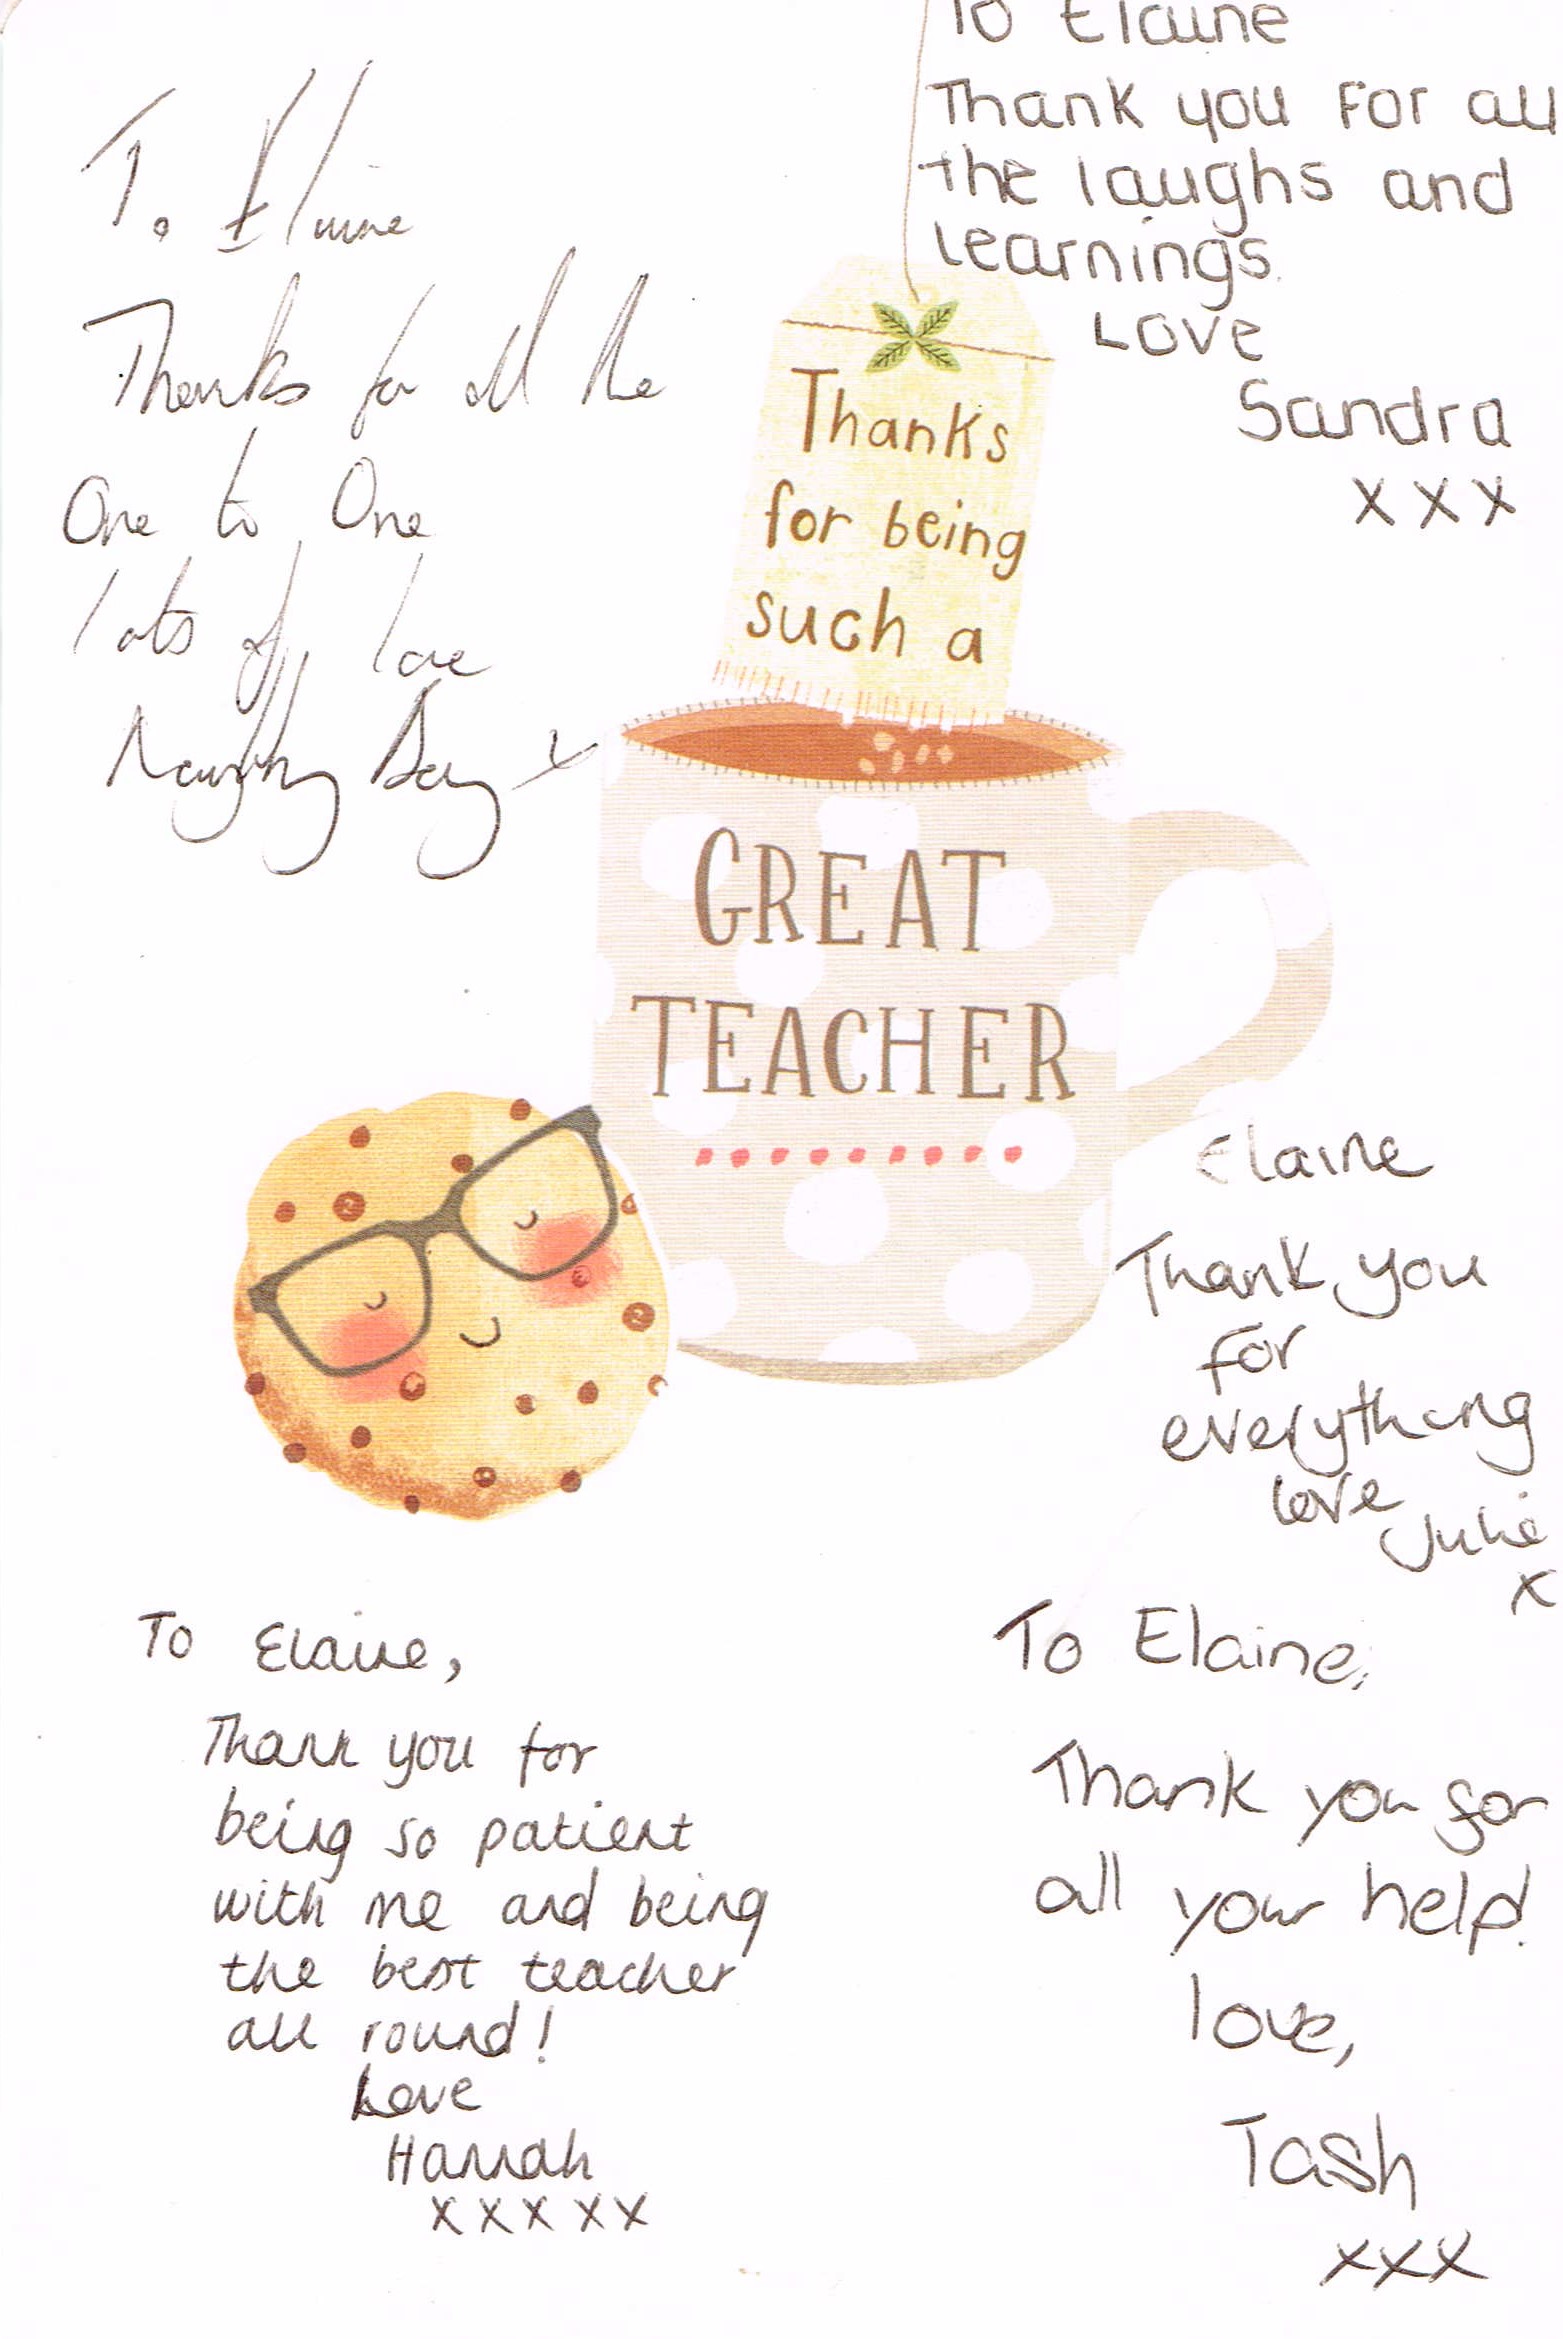 To Elaine
Thanks for all the
One to One
lots of love
Naughty Boy x
To Elaine
Thank you For all
the laughs and
learnings.
Love
Sandra
x x x
Thanks
for being
such a
GREAT
TEACHER
Elaine
Thank you
for
everything
love Julie
x
To Elaine,
Thank you for
being so patient
with me and being
the best teacher
all round!
Love
Hannah
x x x x x
To Elaine,
Thank you for
all your help!
love,
Tash
xxx